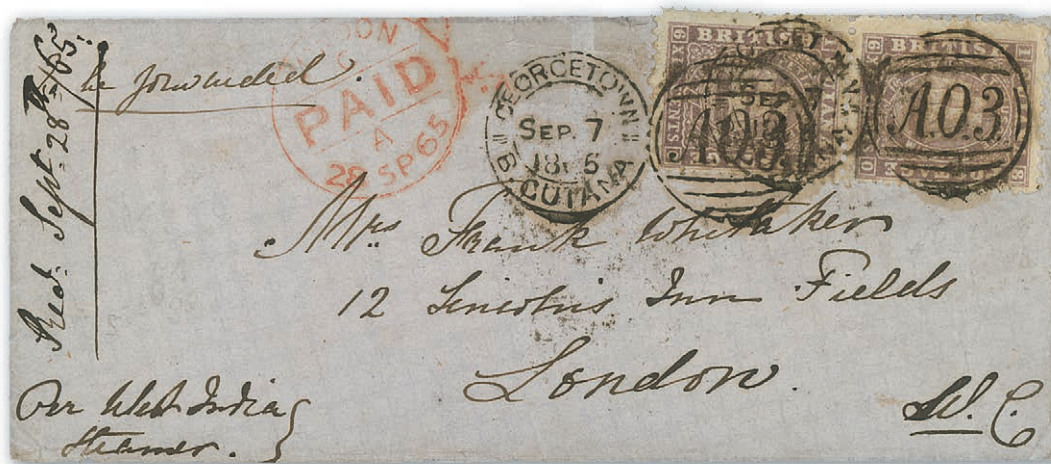 Recd. Sept. 28th /65.
be forwarded.
LONDON
PAID
A
28 SP 65
GEORGETOWN
SEP. 7
18 5
B. GUIANA
BRITISH
CENTS
A.O.3.
BRITISH
A.O.3.
Mrs Frank Whitaker
12 Lincolns Inn Fields
London.
W.C.
Per West India
Steamer.